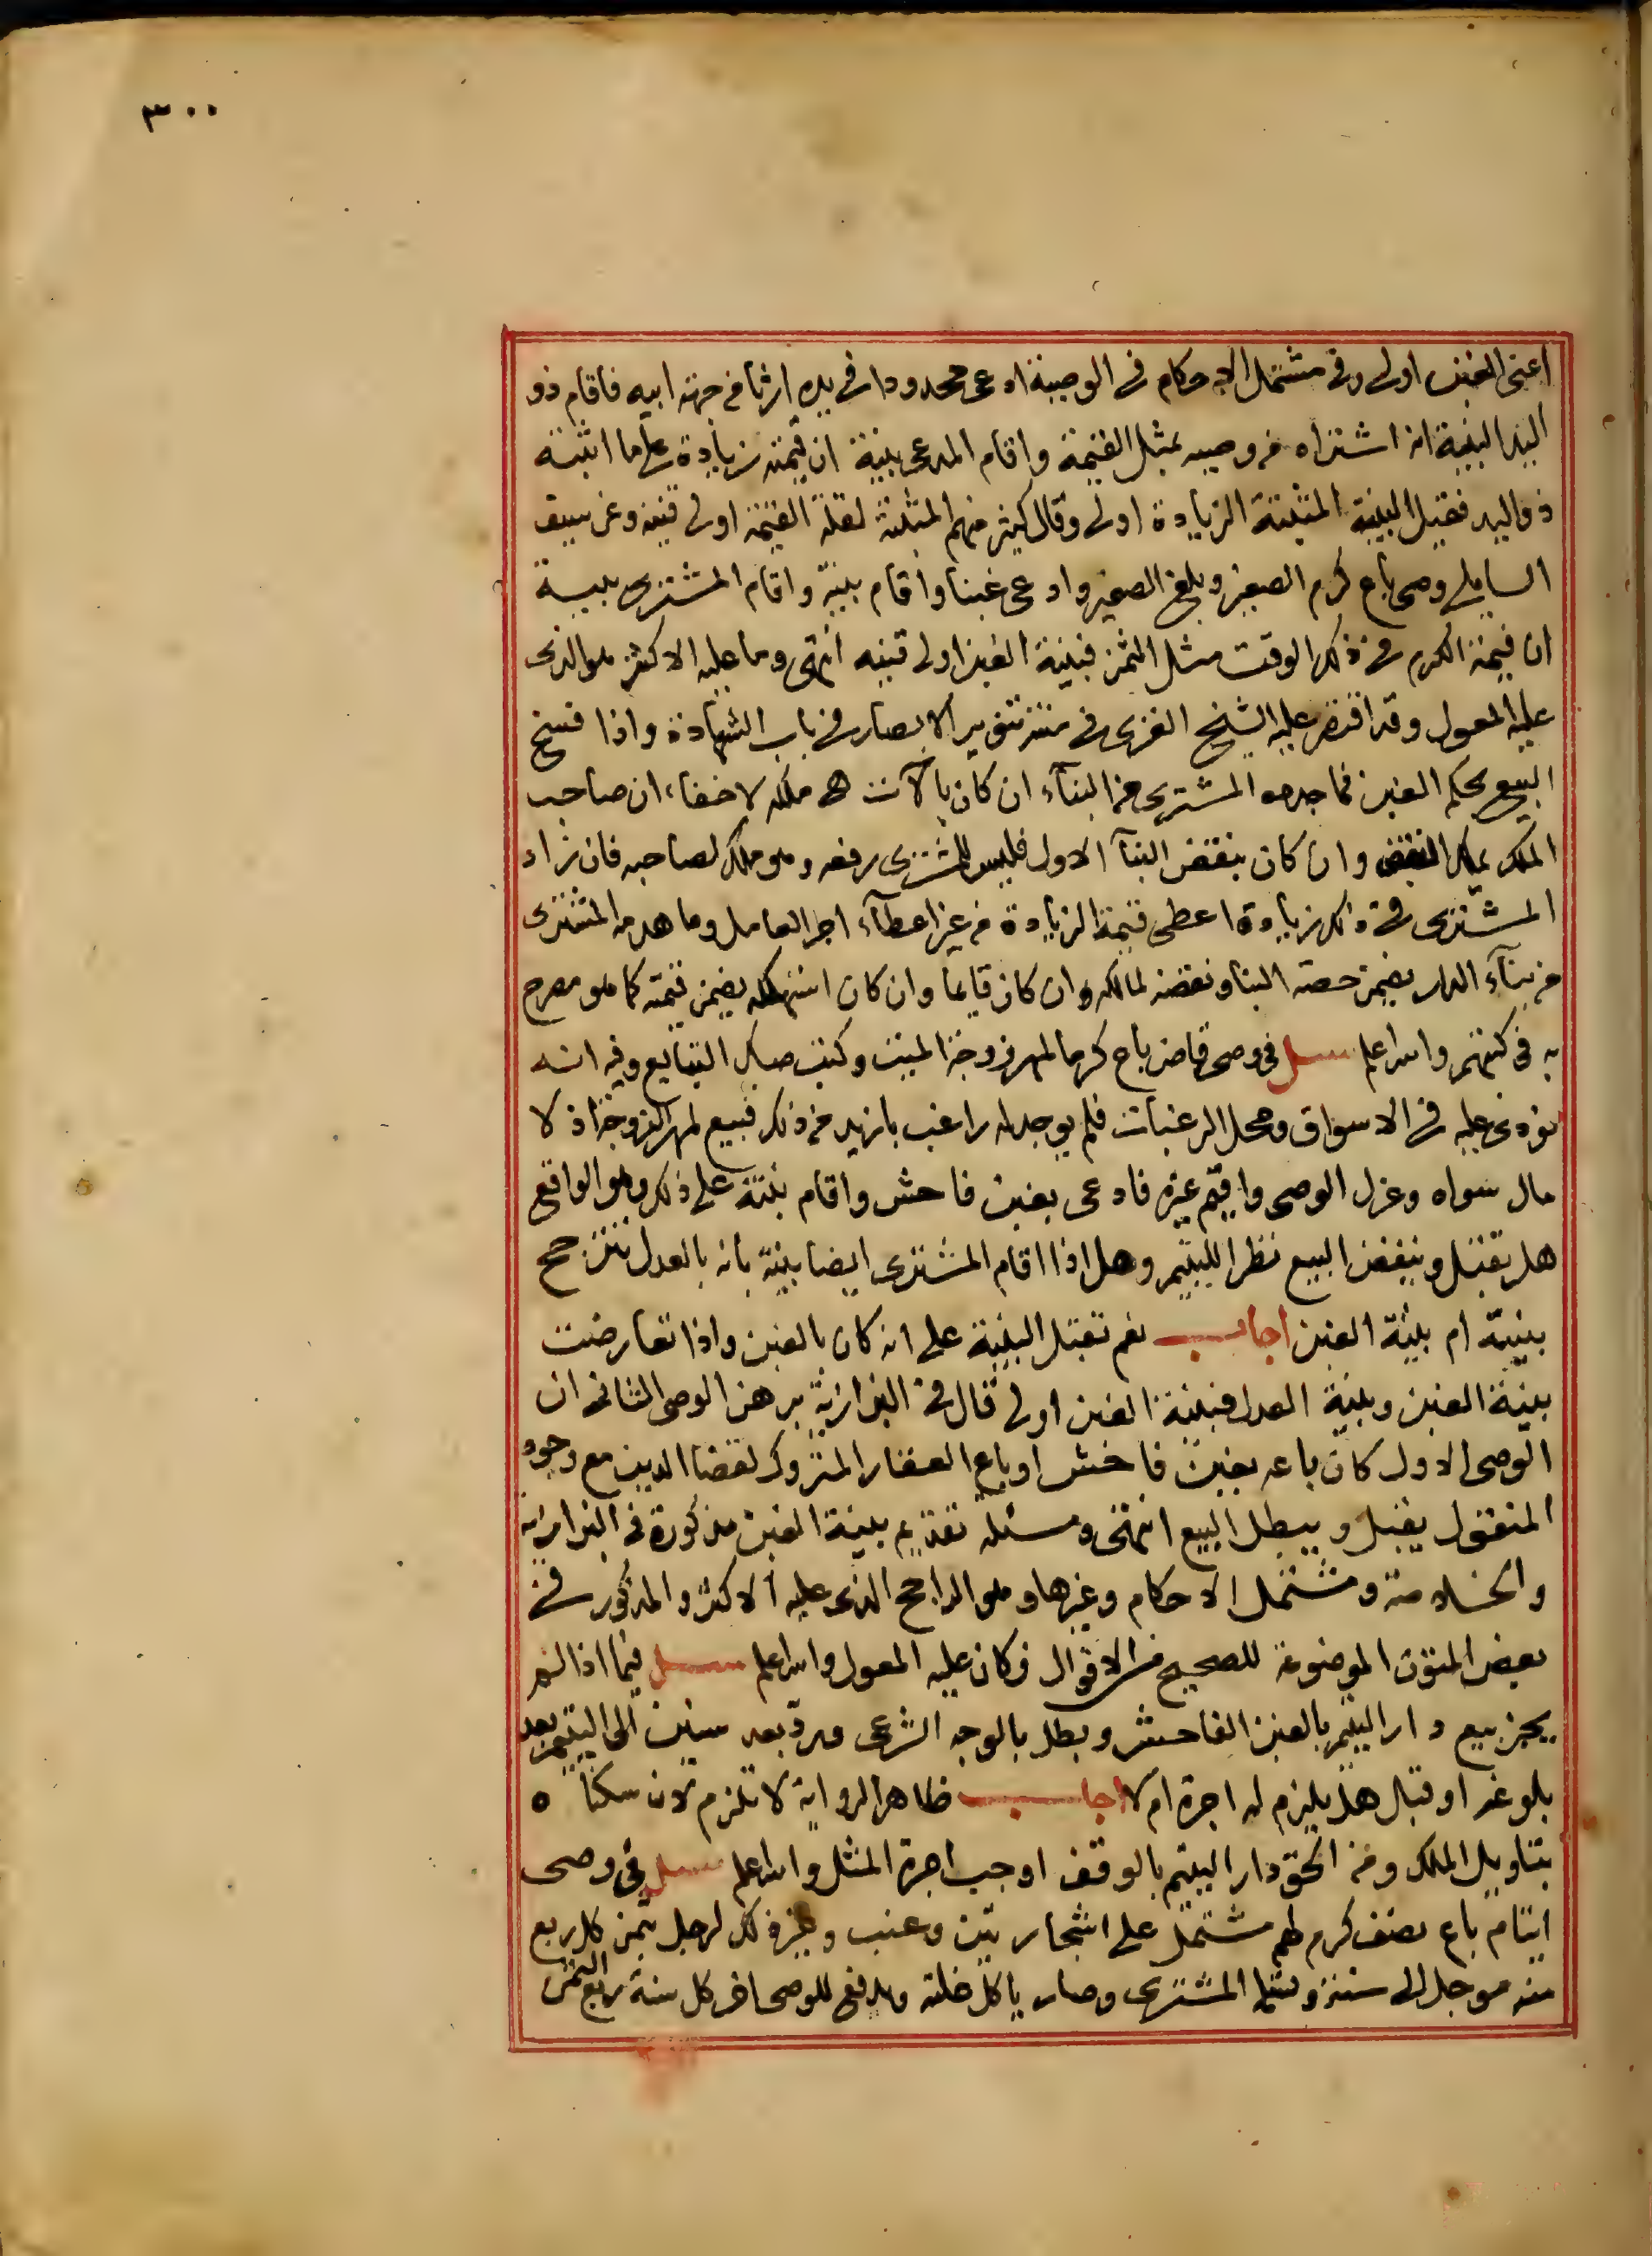 ٣٠٠
اعنى الغبن اولى وفى مشتمل الاحكام فى الوصية ادعى محدودا فى يده ارثا من جهة ابيه فاقام ذو
اليد البينة انه اشتراه من وصيه بمثل القيمة واقام المدعى بينة ان قيمته زيادة على ما اثبته
ذو اليد فقيل البينة المثبتة الزيادة اولى وقال كثير منهم المثبتة لقلة القيمة اولى قنيه وعن سيف
السايلى وصى باع كرم الصغير وبلغ الصغير وادعى غبنا واقام بينة واقام المشترى بينة
ان قيمة الكرم فى ذلك الوقت مثل الثمن فبينة الغبن اولى قنيه انتهى وما عليه الاكثر هو الذى
عليه المعول وقد اقتصر عليه الشيخ الغزى فى متن تنوير الابصار فى باب الشهادة واذا فسخ
البيع بحكم الغبن فما جدده المشترى من البنآء ان كان بآلات هى ملكه لاخفاء ان صاحب
الملك يملك النقض وان كان بنقض البنآ الاول فليس للمشترى رفعه وهو ملك لصاحبه فان زاد
المشترى فى ذلك زيادة اعطى قيمة الزيادة من غير اعطآء اجر العامل وما هدمه المشترى
من بنآء الدار يضمن حصة البنا ونقضه لمالكه وان كان قايما وان كان استهلكه يضمن قيمته كما هو مصرح
به فى كتبهم والله اعلم سـئل فى وصى قاض باع كرما لمهر زوجة الميت وكتب صك التبايع وفيه انه
نودى عليه فى الاسواق ومحل الرغبات فلم يوجد له راغب بازيد من ذلك فبيع لمهر الزوجة اذ لا
مال سواه وعزل الوصى واقيم غيره فادعى بغبن فاحش واقام بينة على ذلك وهو الواقع
هل تقبل وينقض البيع نظرا لليتيم وهل اذا اقام المشترى ايضا بينة بانه بالعدل تترجح
بينته ام بينة الغبن اجاب نعم تقبل البينة على انه كان بالغبن واذا تعارضت
بينة الغبن وبينة العدل فبينة الغبن اولى قال فى البزازية برهن الوصى الثانى ان
الوصى الاول كان باعه بغبن فاحش او باع العقار المتروك لقضا الدين مع وجود
المنقول يقبل ويبطل البيع انتهى ومسئلة تقديم بينة الغبن مذكورة فى البزازيه
والخلاصة ومشتمل الاحكام وغيرها وهو الراجح الذى عليه الاكثر والمذكور فى
بعض المتون الموضوعة للصحيح من الاقوال فكان عليه المعول والله اعلم سـئل فيما اذا لم
يجز بيع دار اليتيم بالغبن الفاحش وبطل بالوجه الشرعى ورد بعد سنين الى اليتيم بعد
بلوغه او قبل هل يلزم له اجرة ام لا اجاب ظاهر الرواية لا تلزم لانه سكنا ٥
بتاويل الملك ومن الحق دار اليتيم بالوقف اوجب اجرة المثل والله اعلم سـئل فى وصى
ايتام باع نصف كرم لهم مشتمل على اشجار تين وعنب وغير ذلك لرجل بثمن كل ربع
منه موجل الى سنة وتسلم المشترى وصار ياكل غلته ويدفع للوصى اخر كل سنة ربع الثمن